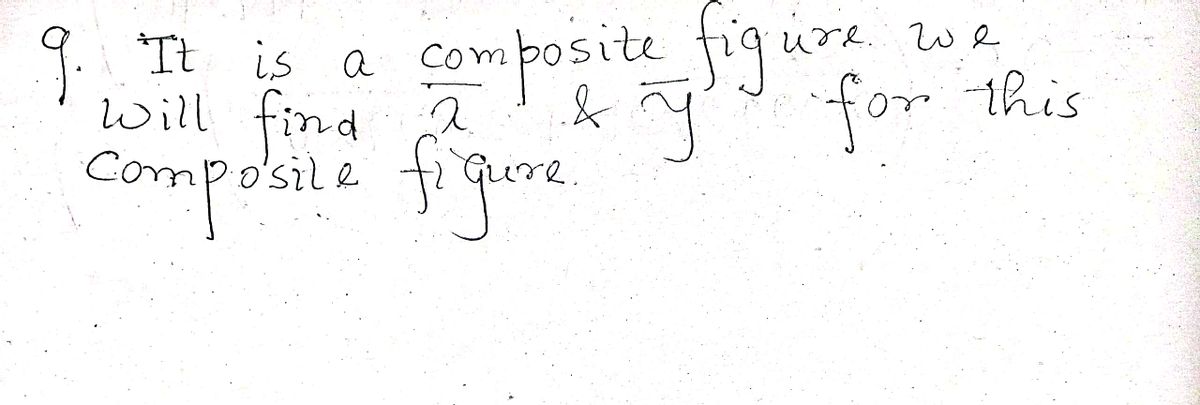 9. It is a composite figure. we
will find x̅ & y̅ for this
Composite figure.